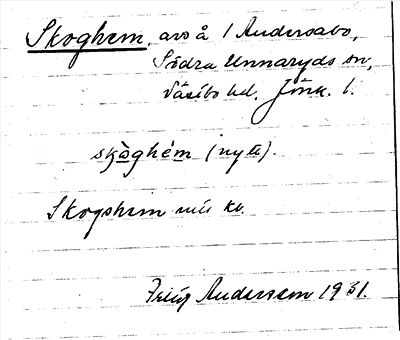 Skoghem, avs å 1 Andersabo,
Södra Unnaryds sn,
Västbo hd. Jönk. l.
skòghém (nytt).
Skogshem
Andersson 1931.